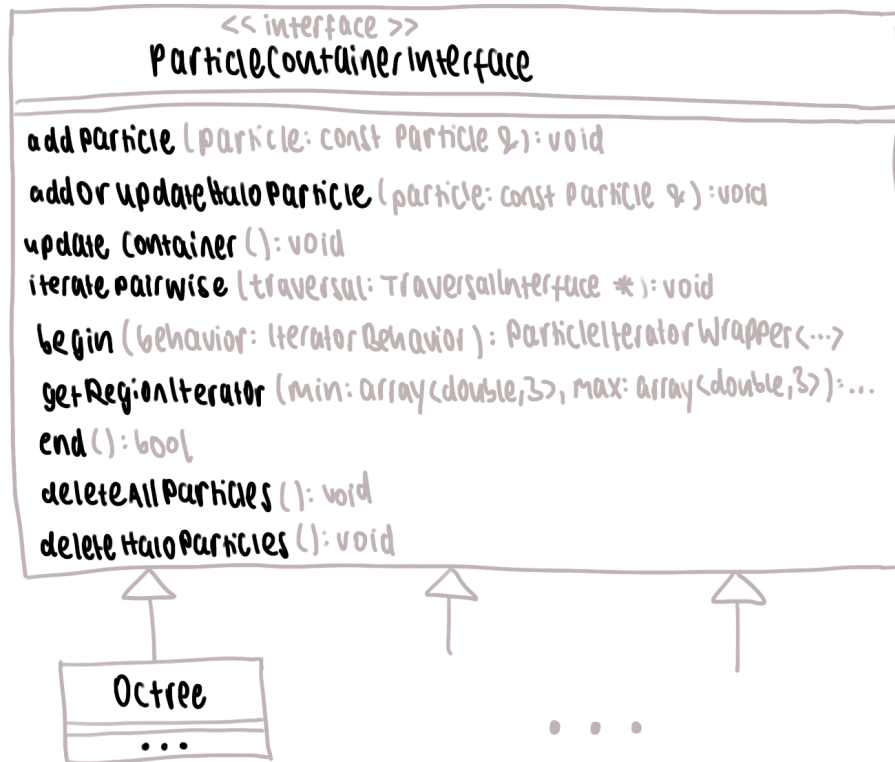 << interface >>
ParticleContainerInterface
addParticle (particle: const Particle &): void
addOrUpdateHaloParticle (particle: const Particle &): void
updateContainer (): void
iteratePairwise (traversal: TraversalInterface *): void
begin (behavior: IteratorBehavior): ParticleIteratorWrapper<...>
getRegionIterator (min: array<double,3>, max: array<double,3>): ...
end (): bool
deleteAllParticles (): void
deleteHaloParticles (): void
Octree
...
...